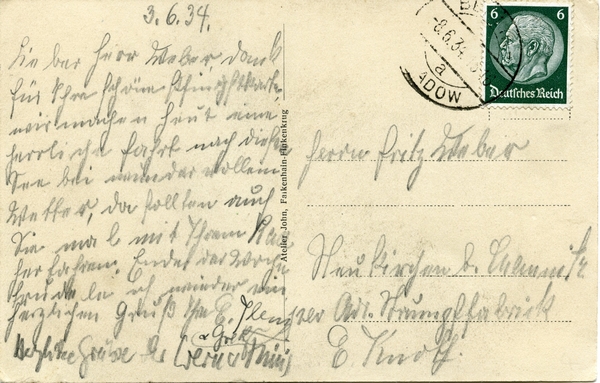 3.6.34.
Lieber Herr Weber dank
für Ihre schöne Pfingstkarte,
wir machen heut eine
herrliche Fahrt nach dieser
See bei wundervollem
Wetter, da sollten auch
Sie mal mit Ihrem
fahren. Ende der Woche
wieder ein
herzlichen Gruß Ihr E.
Herzliche Grüße
Atelier John, Falkenhain-Finkenkrug
8.6.34
a
ADOW
6 6
Deutsches Reich
Herrn Fritz Weber
Neukirchen b. Chemnitz
Adr. Strumpffabrik
E. Knoth.